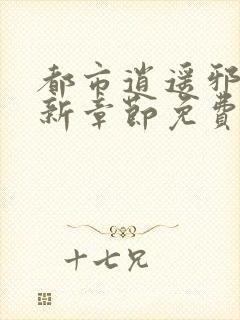 都市逍遥邪
新章节免費
十七兄